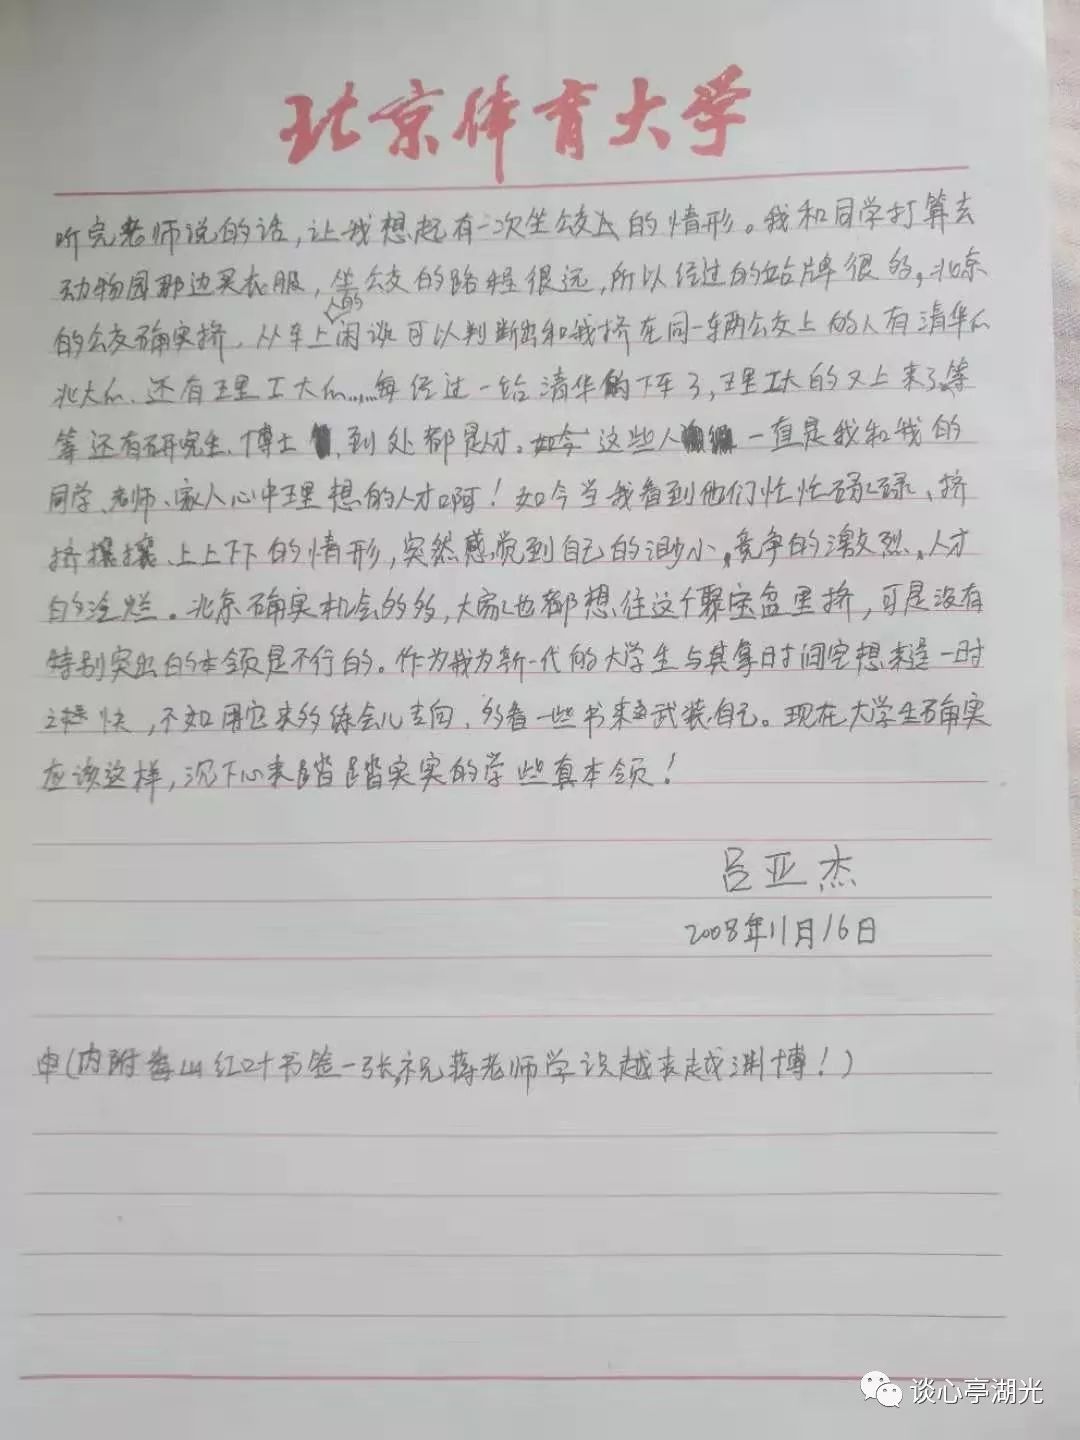 北京体育大学
听完老师说的话,让我想起有一次坐公交的情形。我和同学打算去
动物园那边买衣服,坐公交的路程很远,所以经过的站牌很多,北京
的公交确实挤,从车上人的闲谈可以判断出和我挤在同一车辆公交上的人有清华的
北大的、还有理工大的……每经过一站清华的下车了,理工大的又上来了,等
等还有研究生、博士,到处都是人才。这些人一直是我和我的
同学、老师、家人心中理想的人才啊!如今当我看到他们忙忙碌碌、挤
挤攘攘、上上下下的情形,突然感觉到自己的渺小,竞争的激烈,人才
的泛烂。北京确实机会的多,大家也都想往这个聚宝盆里挤,可是没有
特别突出的本领是不行的。作为我为新一代的大学生与其拿时间空想来逞一时
之快,不如用它来多练会儿专向,多看一些书来武装自己。现在大学生确实
应该这样,沉下心来踏踏实实的学些真本领!
吕亚杰
2008年11月16日
申(内附香山红叶书签一张,祝蒋老师学识越来越渊博!)
谈心亭湖光